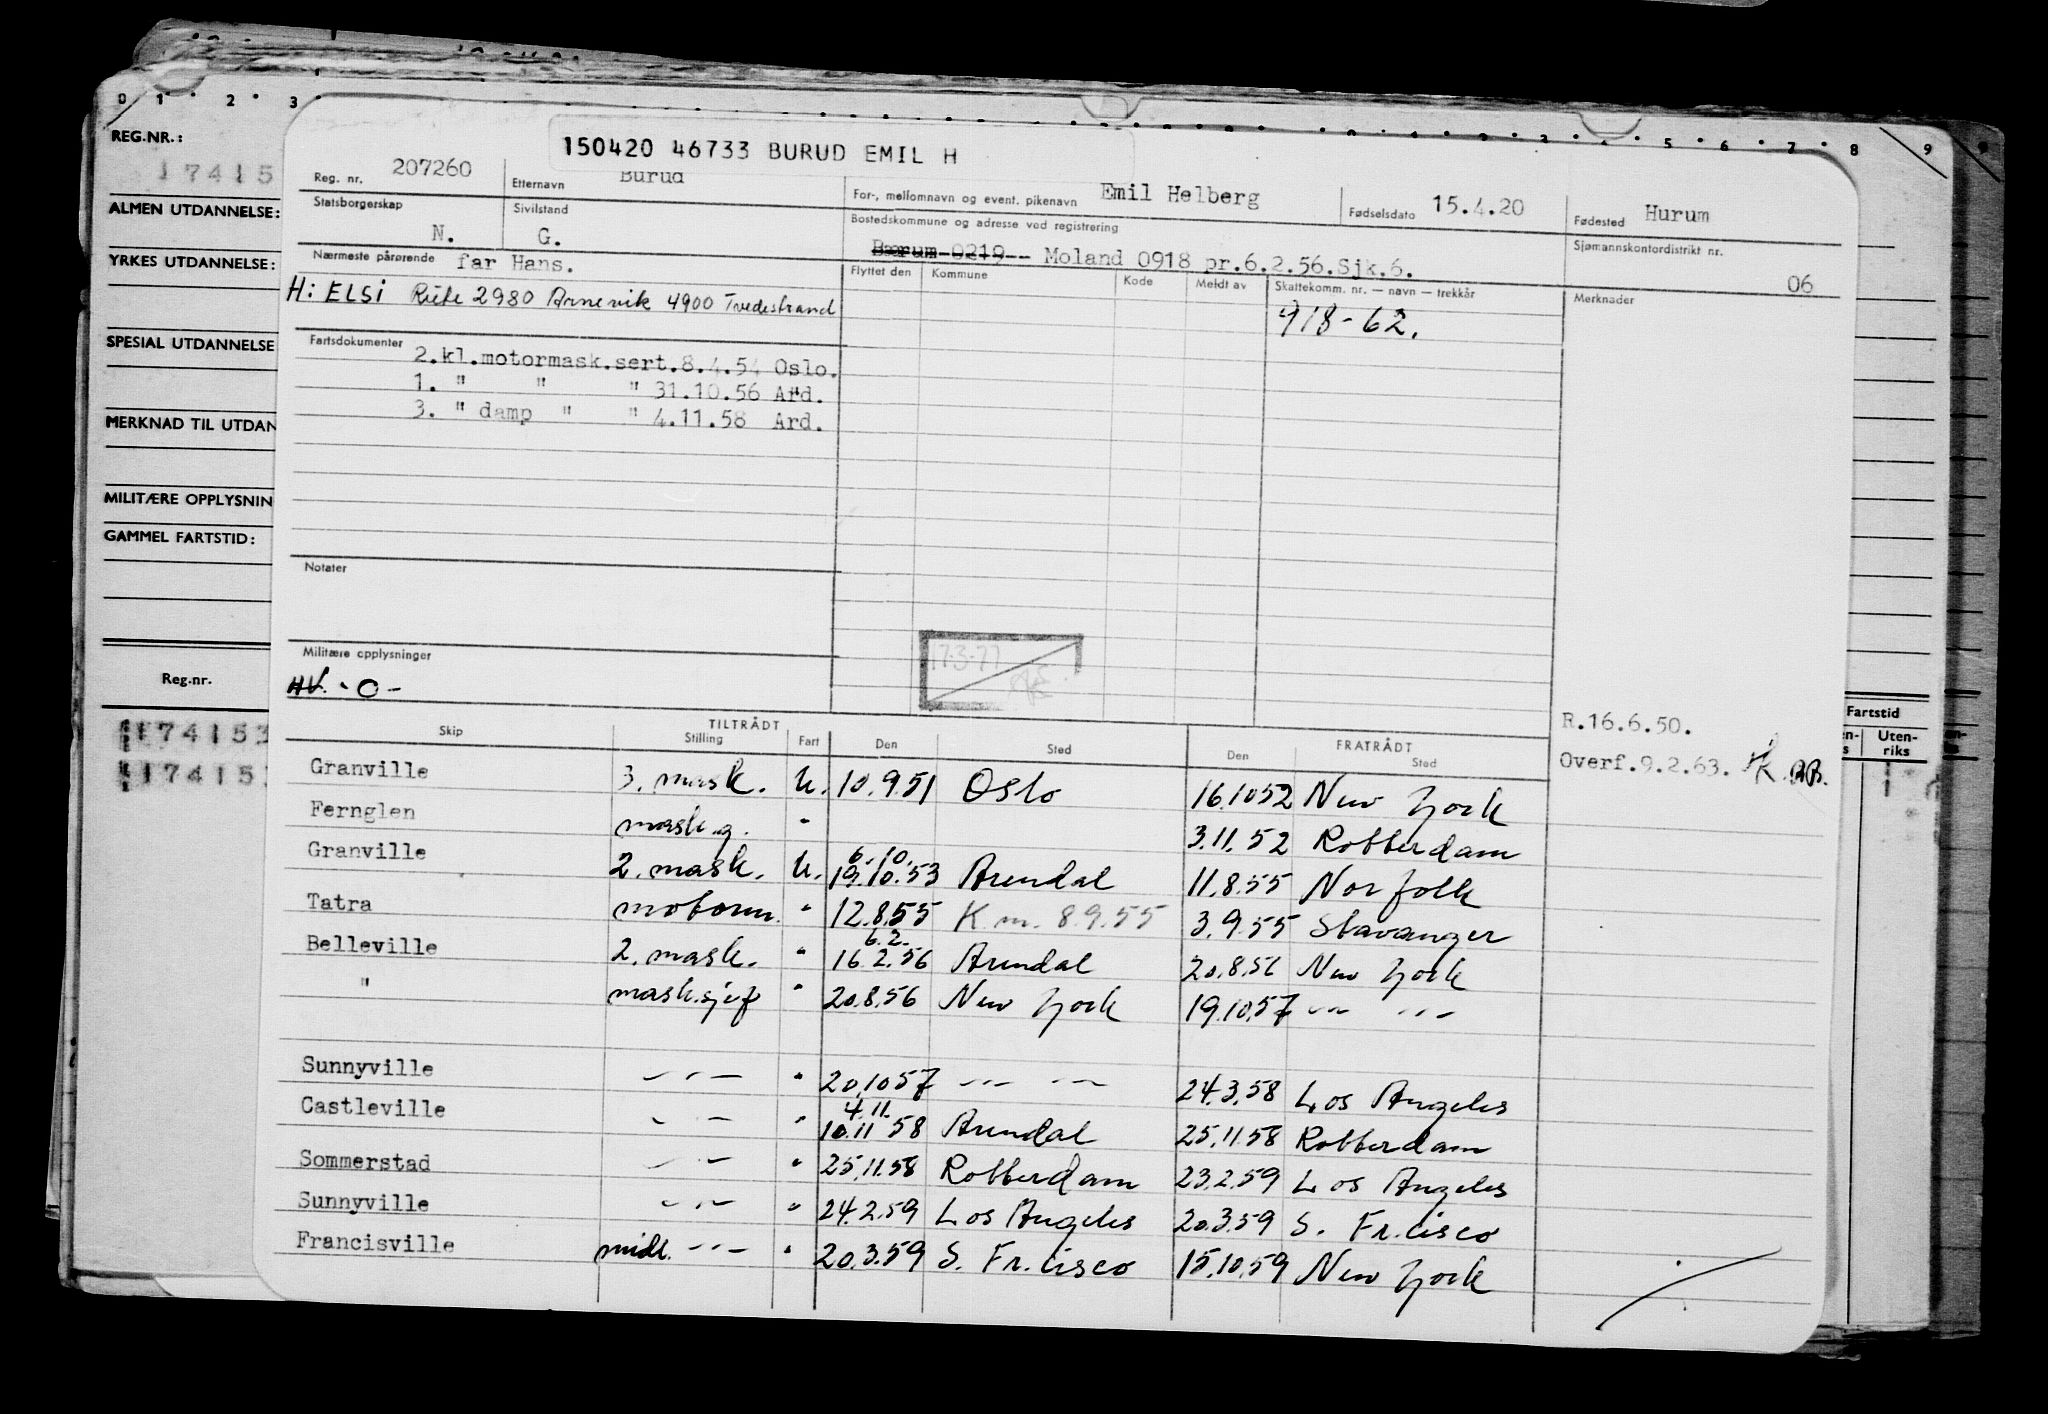 0 1 2 3 5 6 7 8 9
REG.NR.:
17415
ALMEN UTDANNELSE:
YRKES UTDANNELSE:
SPESIAL UTDANNELSE
MERKNAD TIL UTDAN
MILITÆRE OPPLYSNIN
GAMMEL FARTSTID:
Reg.nr.
174153
17415
Fartstid
Uten-
riks
150420 46733 BURUD EMIL H
Reg. nr. 207260 Etternavn Burud For-, mellomnavn og event. pikenavn Emil Helberg Fødselsdato 15.4.20 Fødested Hurum
Statsborgerskap N. Sivilstand G. Bostedskommune og adresse ved registrering Sjømannskontordistrikt nr.
Bærum 0219-- Moland 0918 pr.6.2.56.Sjk.6. 06
Nærmeste pårørende far Hans. Flyttet den Kommune Kode Meldt av Skattekomm. nr. — navn — trekkår Merknader
H: ELSI Rute 2980 Arnevik 4900 Tvedestrand 918-62.
Fartsdokumenter
2.kl.motormask.sert.8.4.54 Oslo.
1. " " " 31.10.56 Ard.
3. " damp " " 4.11.58 Ard.
Notater
17-3-77
Militære opplysninger
HV. -0-
R.16.6.50.
Overf.9.2.63.
TILTRÅDT FRATRÅDT
Skip Stilling Fart Den Sted Den Sted
Granville 3. mask. U. 10.9.51 Oslo 16.10 52 New York
Fernglen mask.g. " 3.11.52 Rotterdam
6.10.
Granville 2. mask. U. 19.10.53 Arendal 11.8.55 Norfolk
Tatra motorm. " 12.8.55 K.m. 8 9.55 3.9.55 Stavanger
6.2.
Belleville 2. mask. " 16.2.56 Arendal 20.8.56 New York
" mask.sjef " 20.8.56 New York 19.10.57 -"- -"-
Sunnyville -"- " 20.10 57 -"- -"- 24.3.58 Los Angeles
4.11.
Castleville -"- " 10.11 58 Arendal 25.11.58 Rotterdam
Sommerstad -"- " 25.11.58 Rotterdam 23.2.59 Los Angeles
Sunnyville -"- " 24.2.59 Los Angeles 20.3.59 S. Fr.cisco
Francisville midl. -"- " 20.3.59 S. Fr.cisco 15.10.59 New York